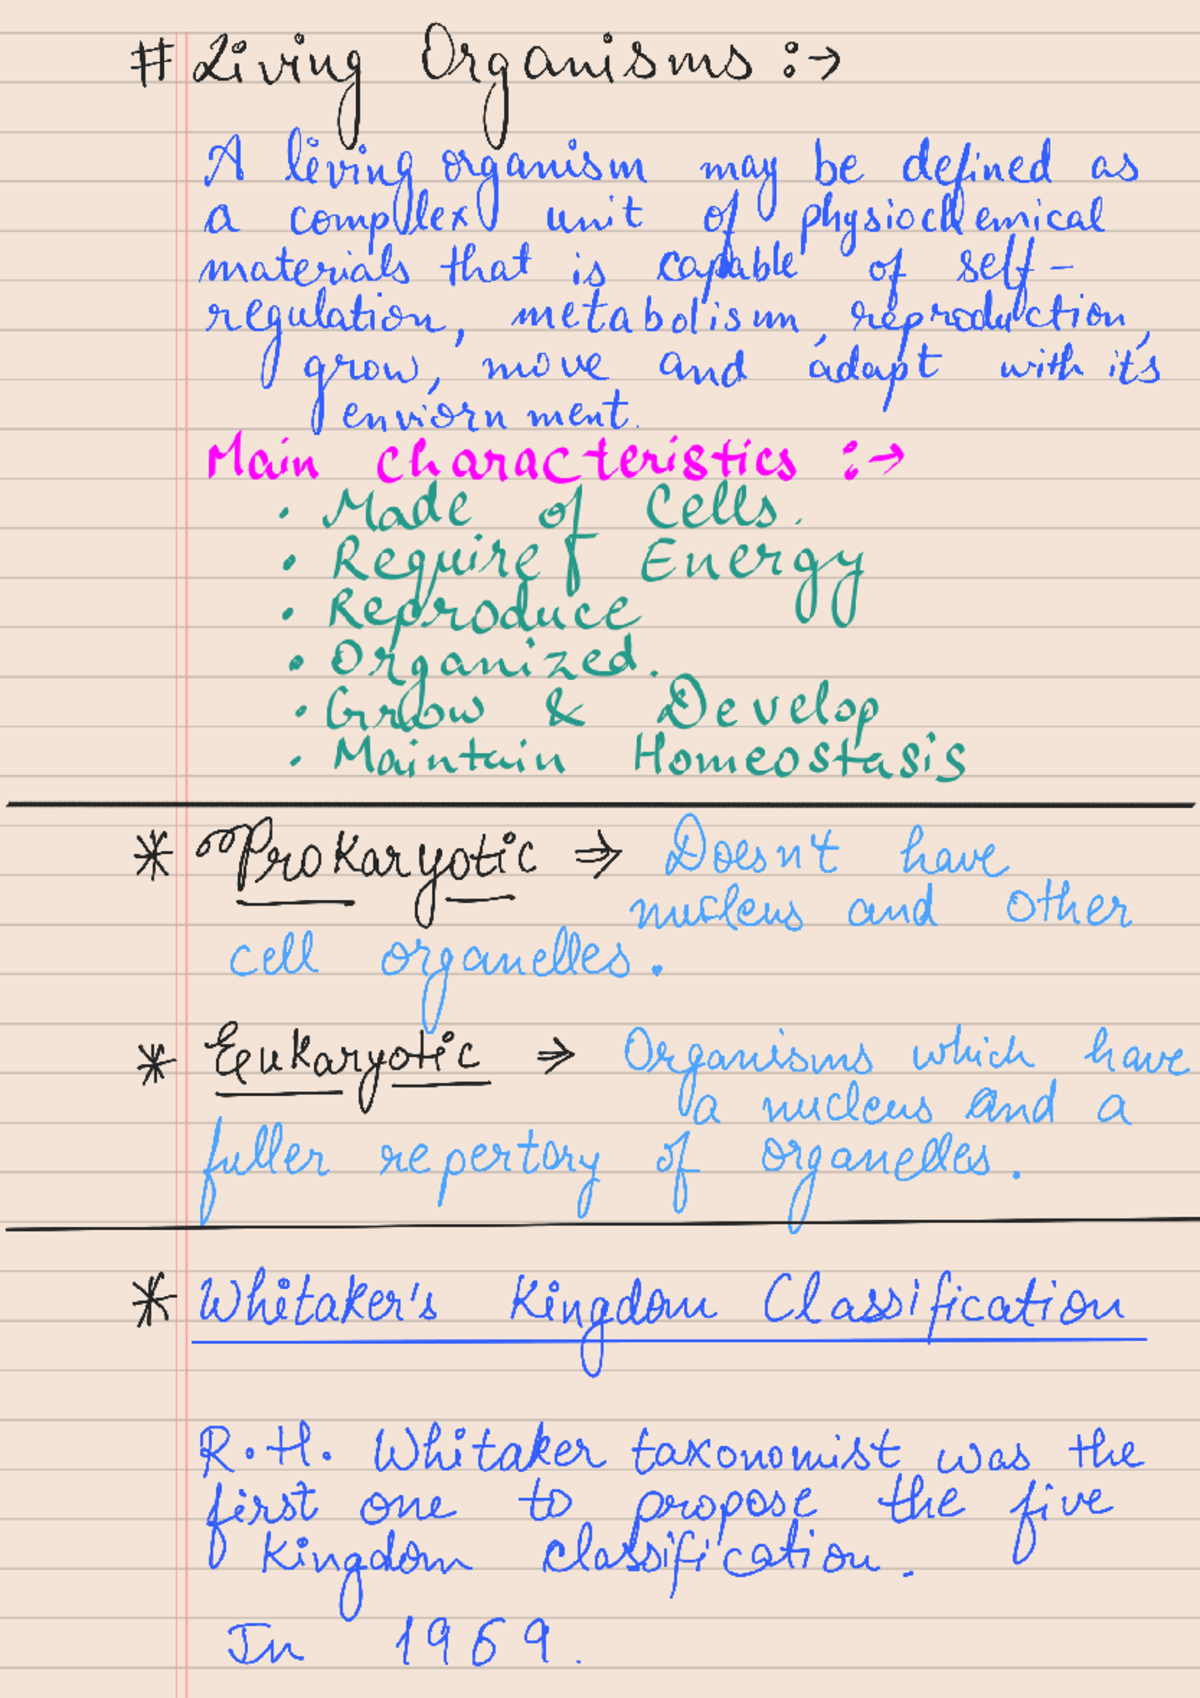 # Living Organisms :→
A living organism may be defined as
a complex unit of physiochemical
materials that is capable of self-
regulation, metabolism, reproduction,
grow, move and adapt with its
enviornment.
Main characteristics :→
• Made of Cells.
• Require Energy
• Reproduce
• Organized.
• Grow & Develop
• Maintain Homeostasis
* Prokaryotic ⇒ Doesn't have
nucleus and other
cell organelles.
* Eukaryotic ⇒ Organisms which have
a nucleus and a
fuller repertory of organelles.
* Whitaker's Kingdom Classification
R.H. Whitaker taxonomist was the
first one to propose the five
kingdom classification.
In 1969.